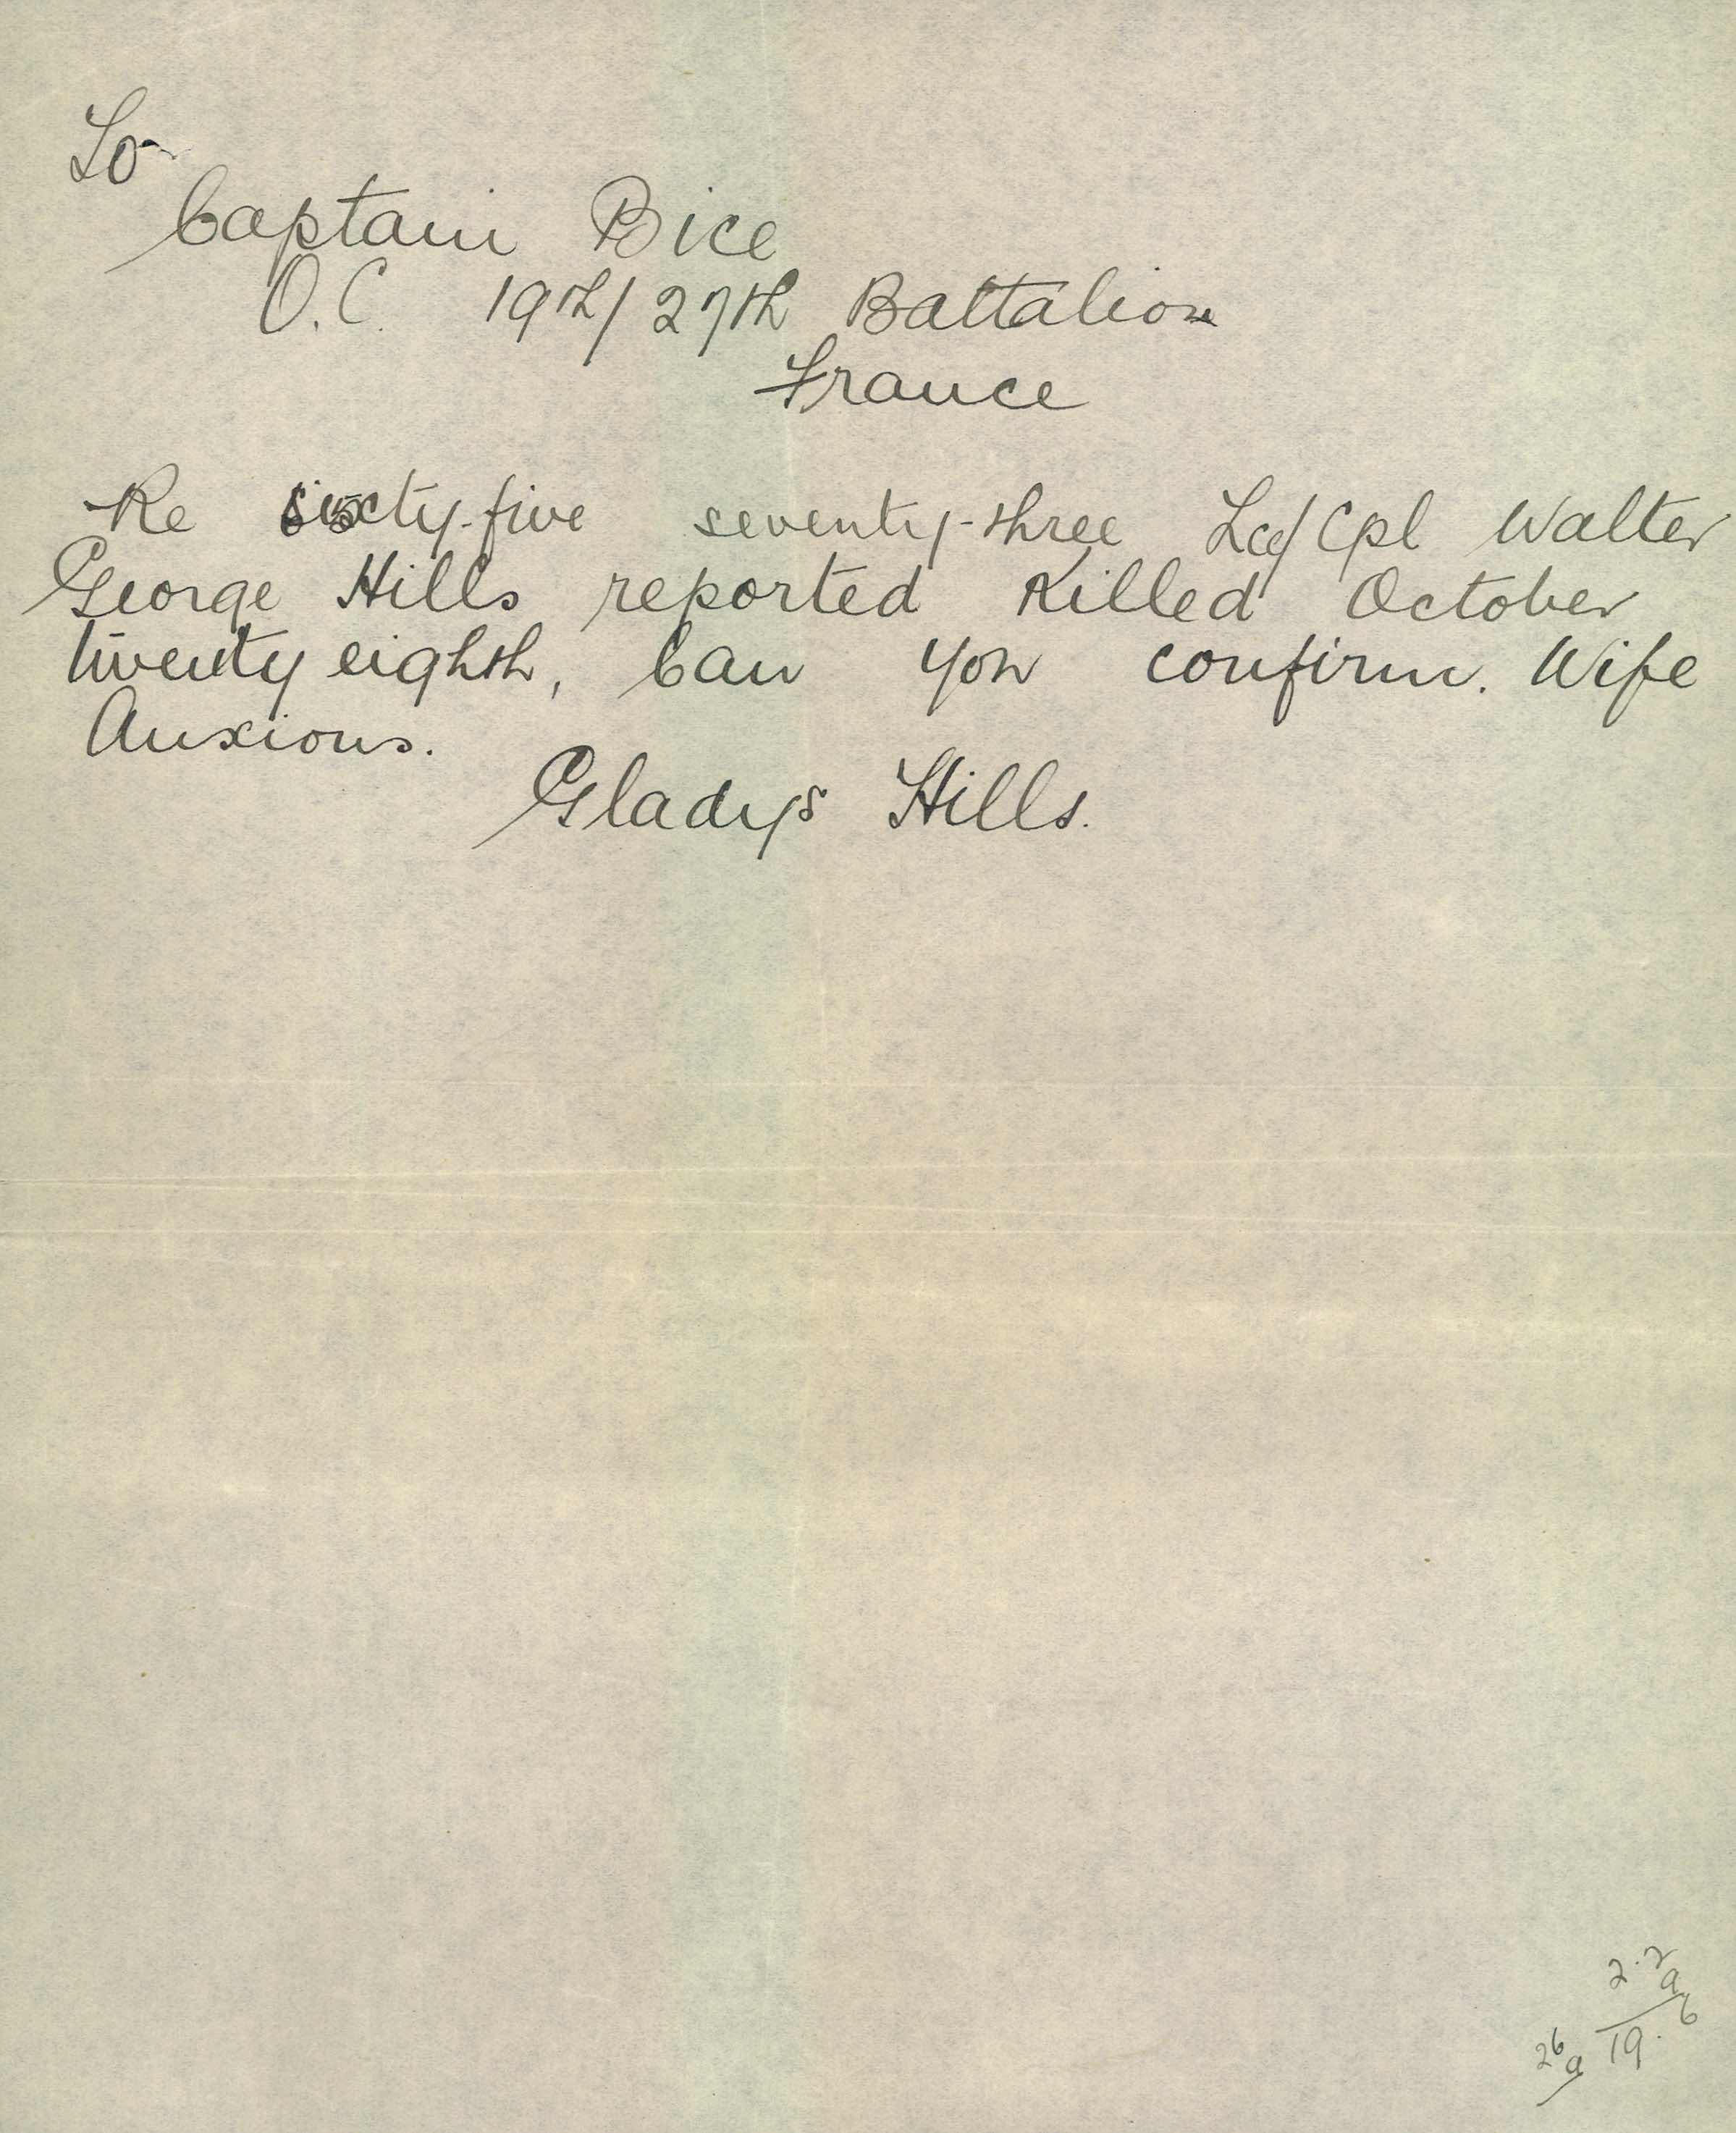 To
Captain Bice
O.C. 19th/27th Battalion
France
Re sixty-five seventy-three Lce/Cpl Walter
George Hills reported Killed October
twenty eighth, Can you confirm. Wife
Anxious.
Gladys Hills.